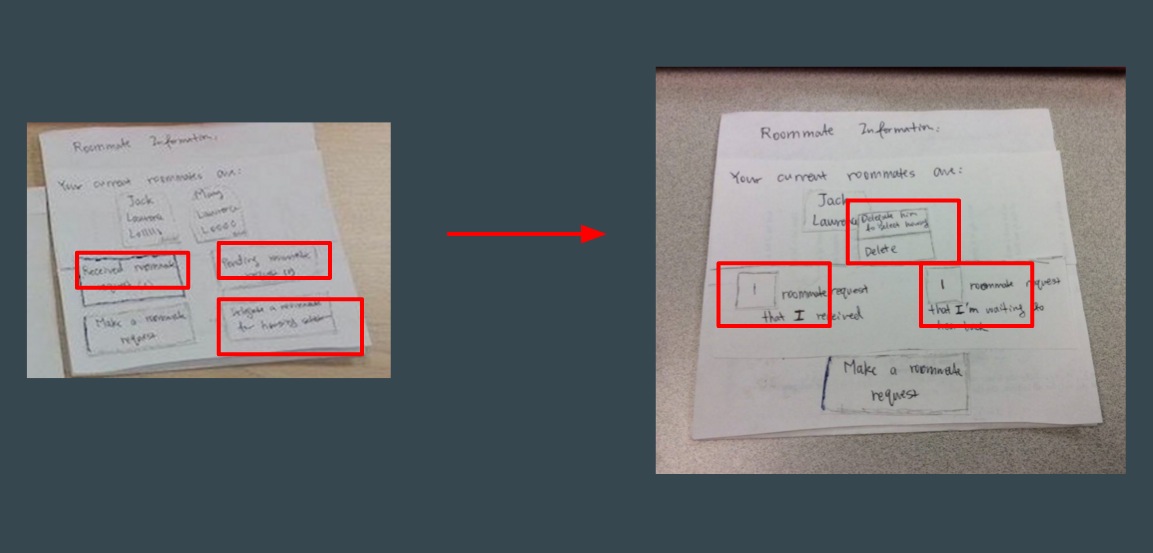 Roommate Information:
Your current roommates are:
Jack
Lawrence
Ming
Lawrence
Received roommate
request (1)
Pending roommate
request (1)
Make a roommate
request
Delegate a roommate
for housing selection
Roommate Information:
Your current roommates are:
Jack
Delegate him
to select housing
Delete
1 roommate request
that I received
1 roommate request
that I'm waiting to
hear back
Make a roommate
request